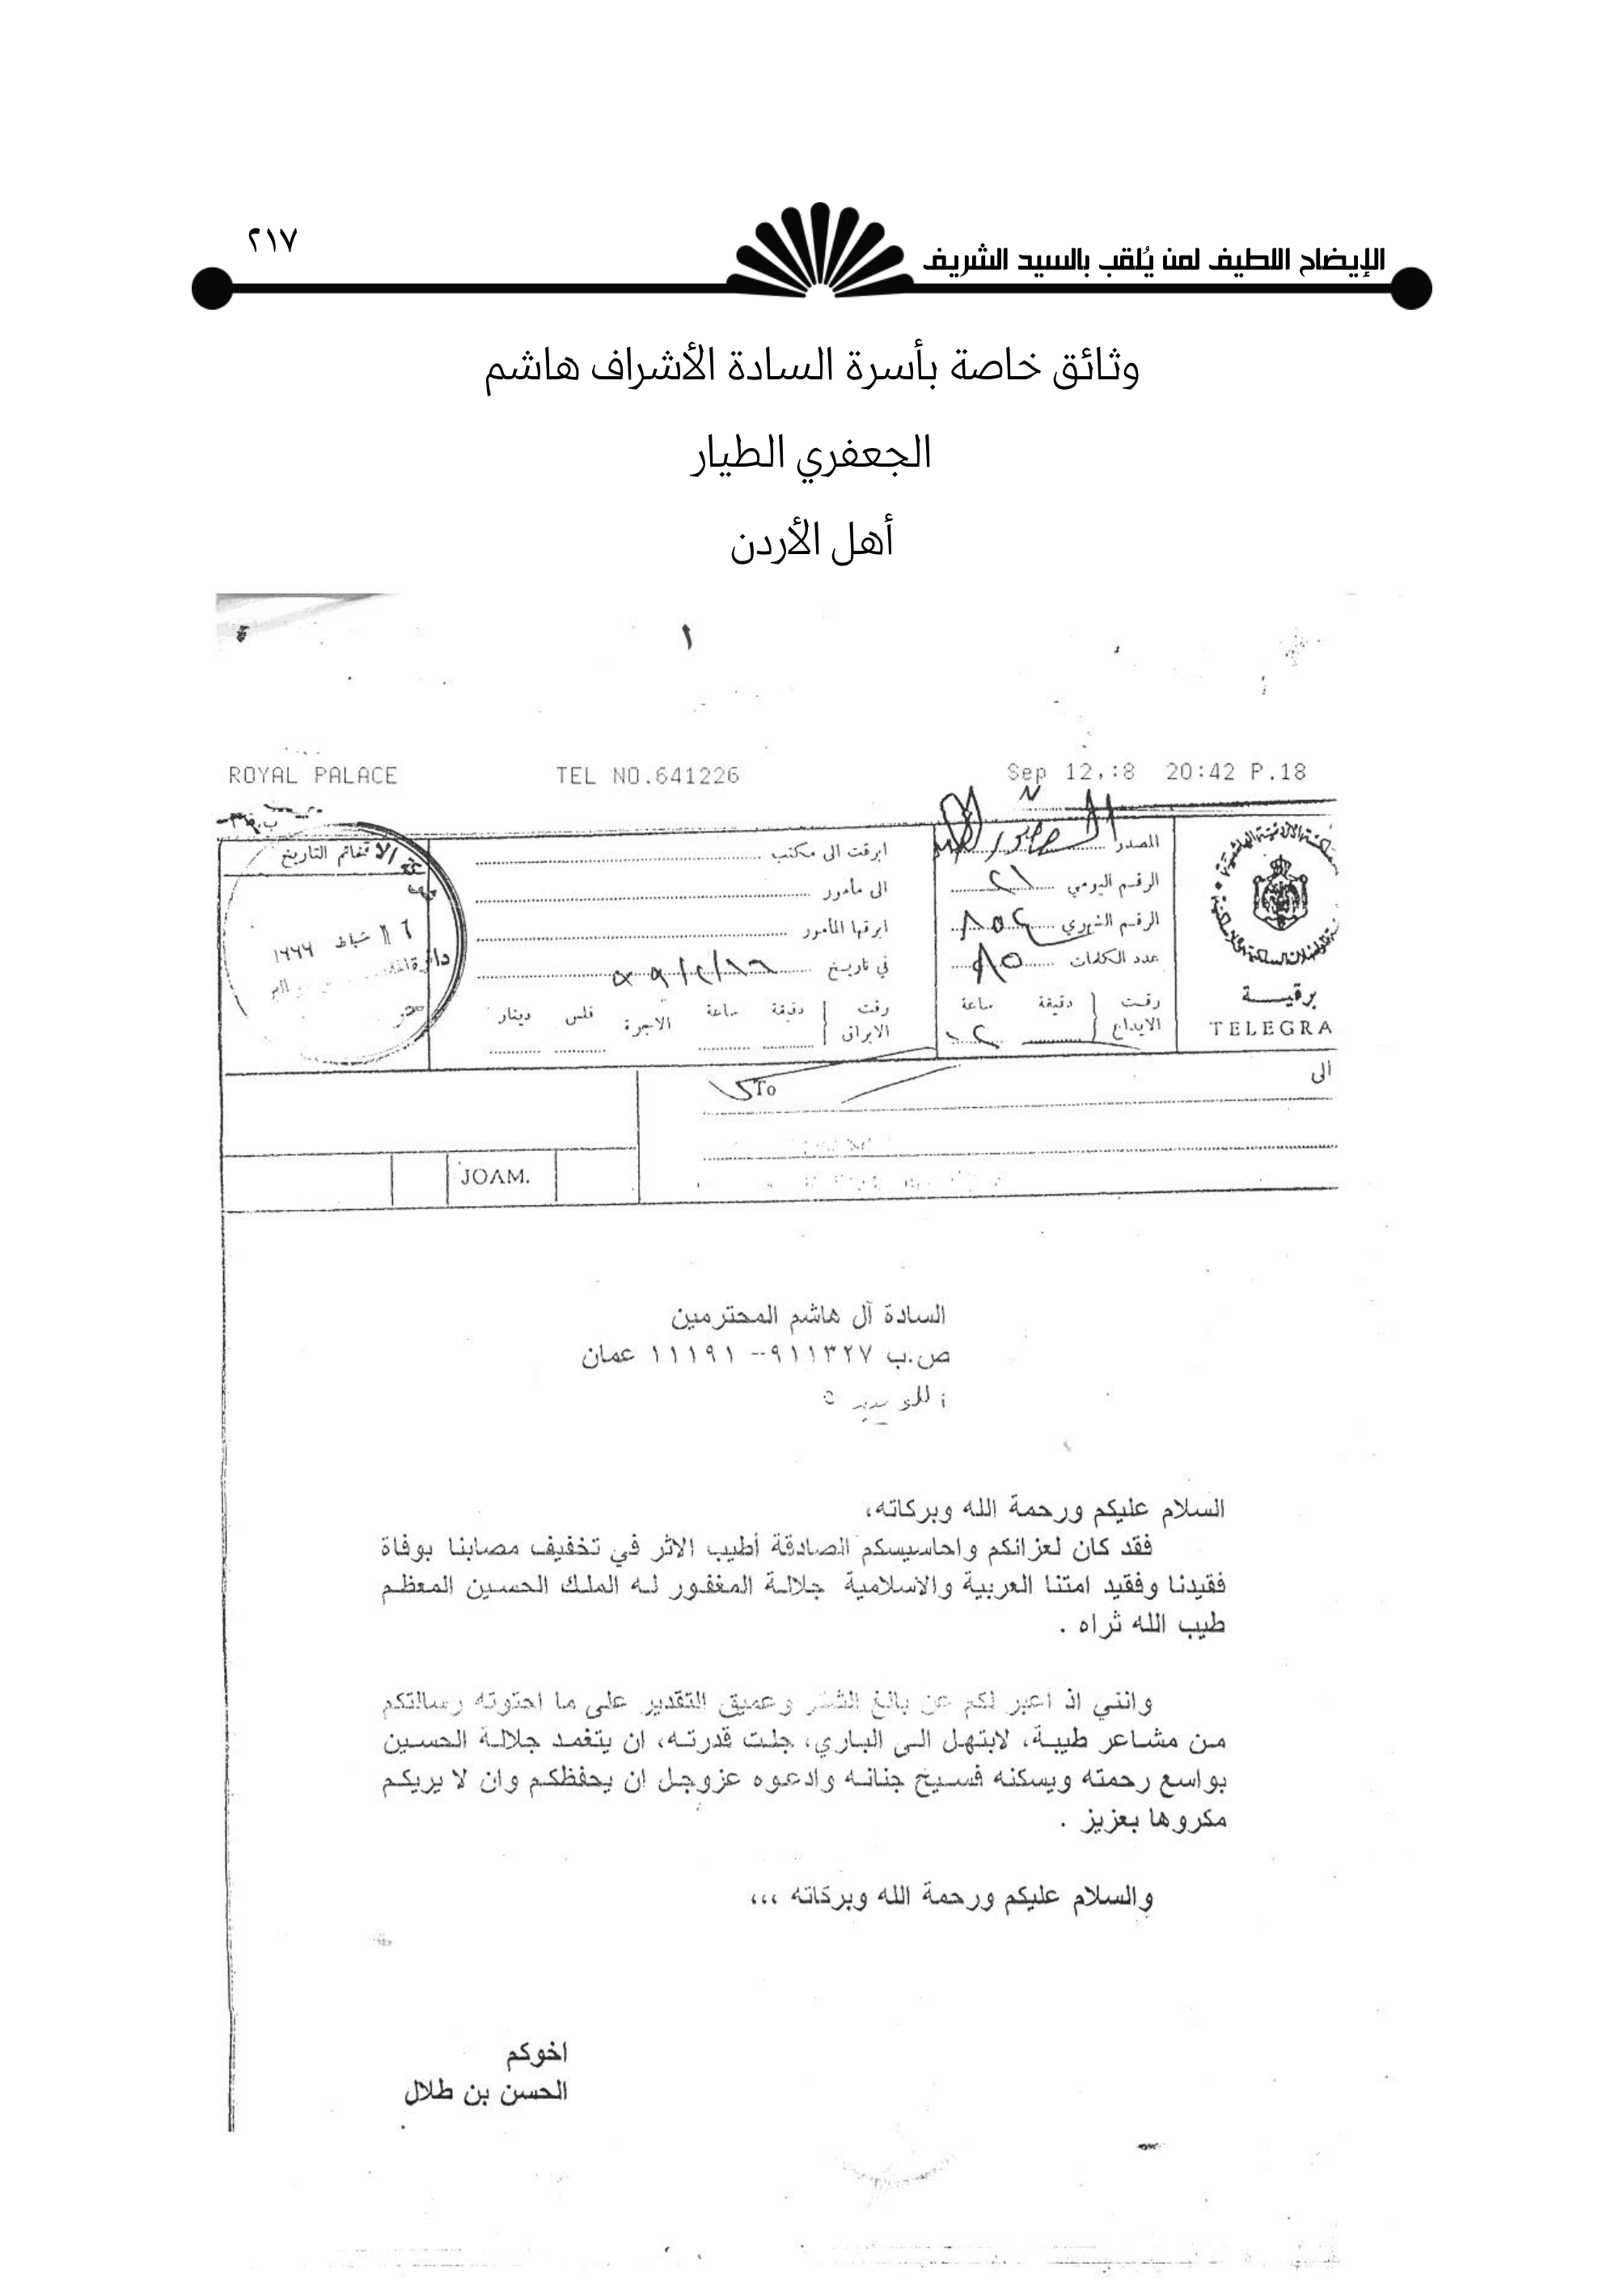 الإيضاح اللطيف لمن يُلقب بالسيد الشريف
٢١٧
وثائق خاصة بأسرة السادة الأشراف هاشم
الجعفري الطيار
أهل الأردن
١
ROYAL PALACE TEL NO.641226 Sep 12,:8 20:42 P.18
المصدر
الرقم اليومي ٢١
الرقم الشهري ٨٥٤
عدد الكلمات ٨٥
وقت الايداع دقيقة ساعة
ابرقت الى مكتب
الى مأمور
ابرقها المأمور
في تاريخ
وقت الابراق دقيقة ساعة الاجرة فلس دينار
خاتم التاريخ
شباط
برقيـــة
TELEGRA
الى
To
JOAM.
السادة آل هاشم المحترمين
ص.ب ٩١١٣٢٧-- ١١١٩١ عمان
السلام عليكم ورحمة الله وبركاته،
فقد كان لعزائكم واحاسيسكم الصادقة أطيب الاثر في تخفيف مصابنا بوفاة
فقيدنا وفقيد امتنا العربية والاسلامية جلالة المغفور له الملك الحسين المعظم
طيب الله ثراه .
وانني اذ اعبر لكم عن بالغ الشكر وعميق التقدير على ما احتوته رسالتكم
من مشاعر طيبة، لابتهل الى الباري، جلت قدرته، ان يتغمد جلالة الحسين
بواسع رحمته ويسكنه فسيح جنانه وادعوه عزوجل ان يحفظكم وان لا يريكم
مكروها بعزيز .
والسلام عليكم ورحمة الله وبركاته ،،،
اخوكم
الحسن بن طلال